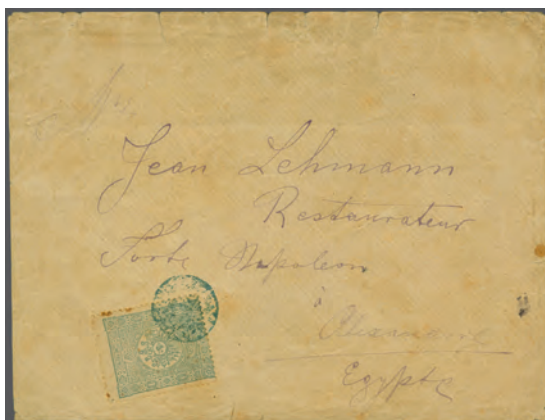 Jean Lehmann
Restaurateur
Forte Napoleon
à
Alexandrie
Egypte